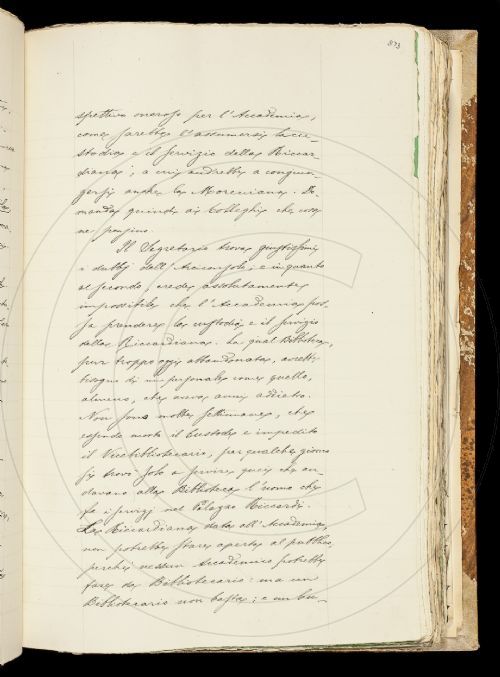 873
spettiva onerosa per l'Accademia,
come sarebbe l'assumersi la cu-
stodia e il servizio della Riccar-
diana; a cui andrebbe a congiun-
gersi anche la Moreniana. Do-
manda quindi ai Colleghi che cosa
ne pensino.
Il Segretario trova giustissimi
i dubbj dell'Arciconsolo; e in quanto
al secondo, crede assolutamente
impossibile che l'Accademia pos-
sa prendere la custodia e il servizio
della Riccardiana. La qual Biblioteca,
pur troppo oggi abbandonata, avreb-
bisogno di un personale come quello,
almeno, che aveva anni addietro.
Non sono molte settimane, che
essendo morto il Custode e impedito
il Vicebibliotecario, per qualche giorno
si trovò solo a servire quei che an-
davano alla Biblioteca l'uomo che
fa i servizj nel Palazzo Riccardi.
La Riccardiana data all'Accademia,
non potrebbe stare aperta al pubblico,
perchè nessun Accademico potrebbe
fare da Bibliotecario: ma un
Bibliotecario non basta; e un bu-